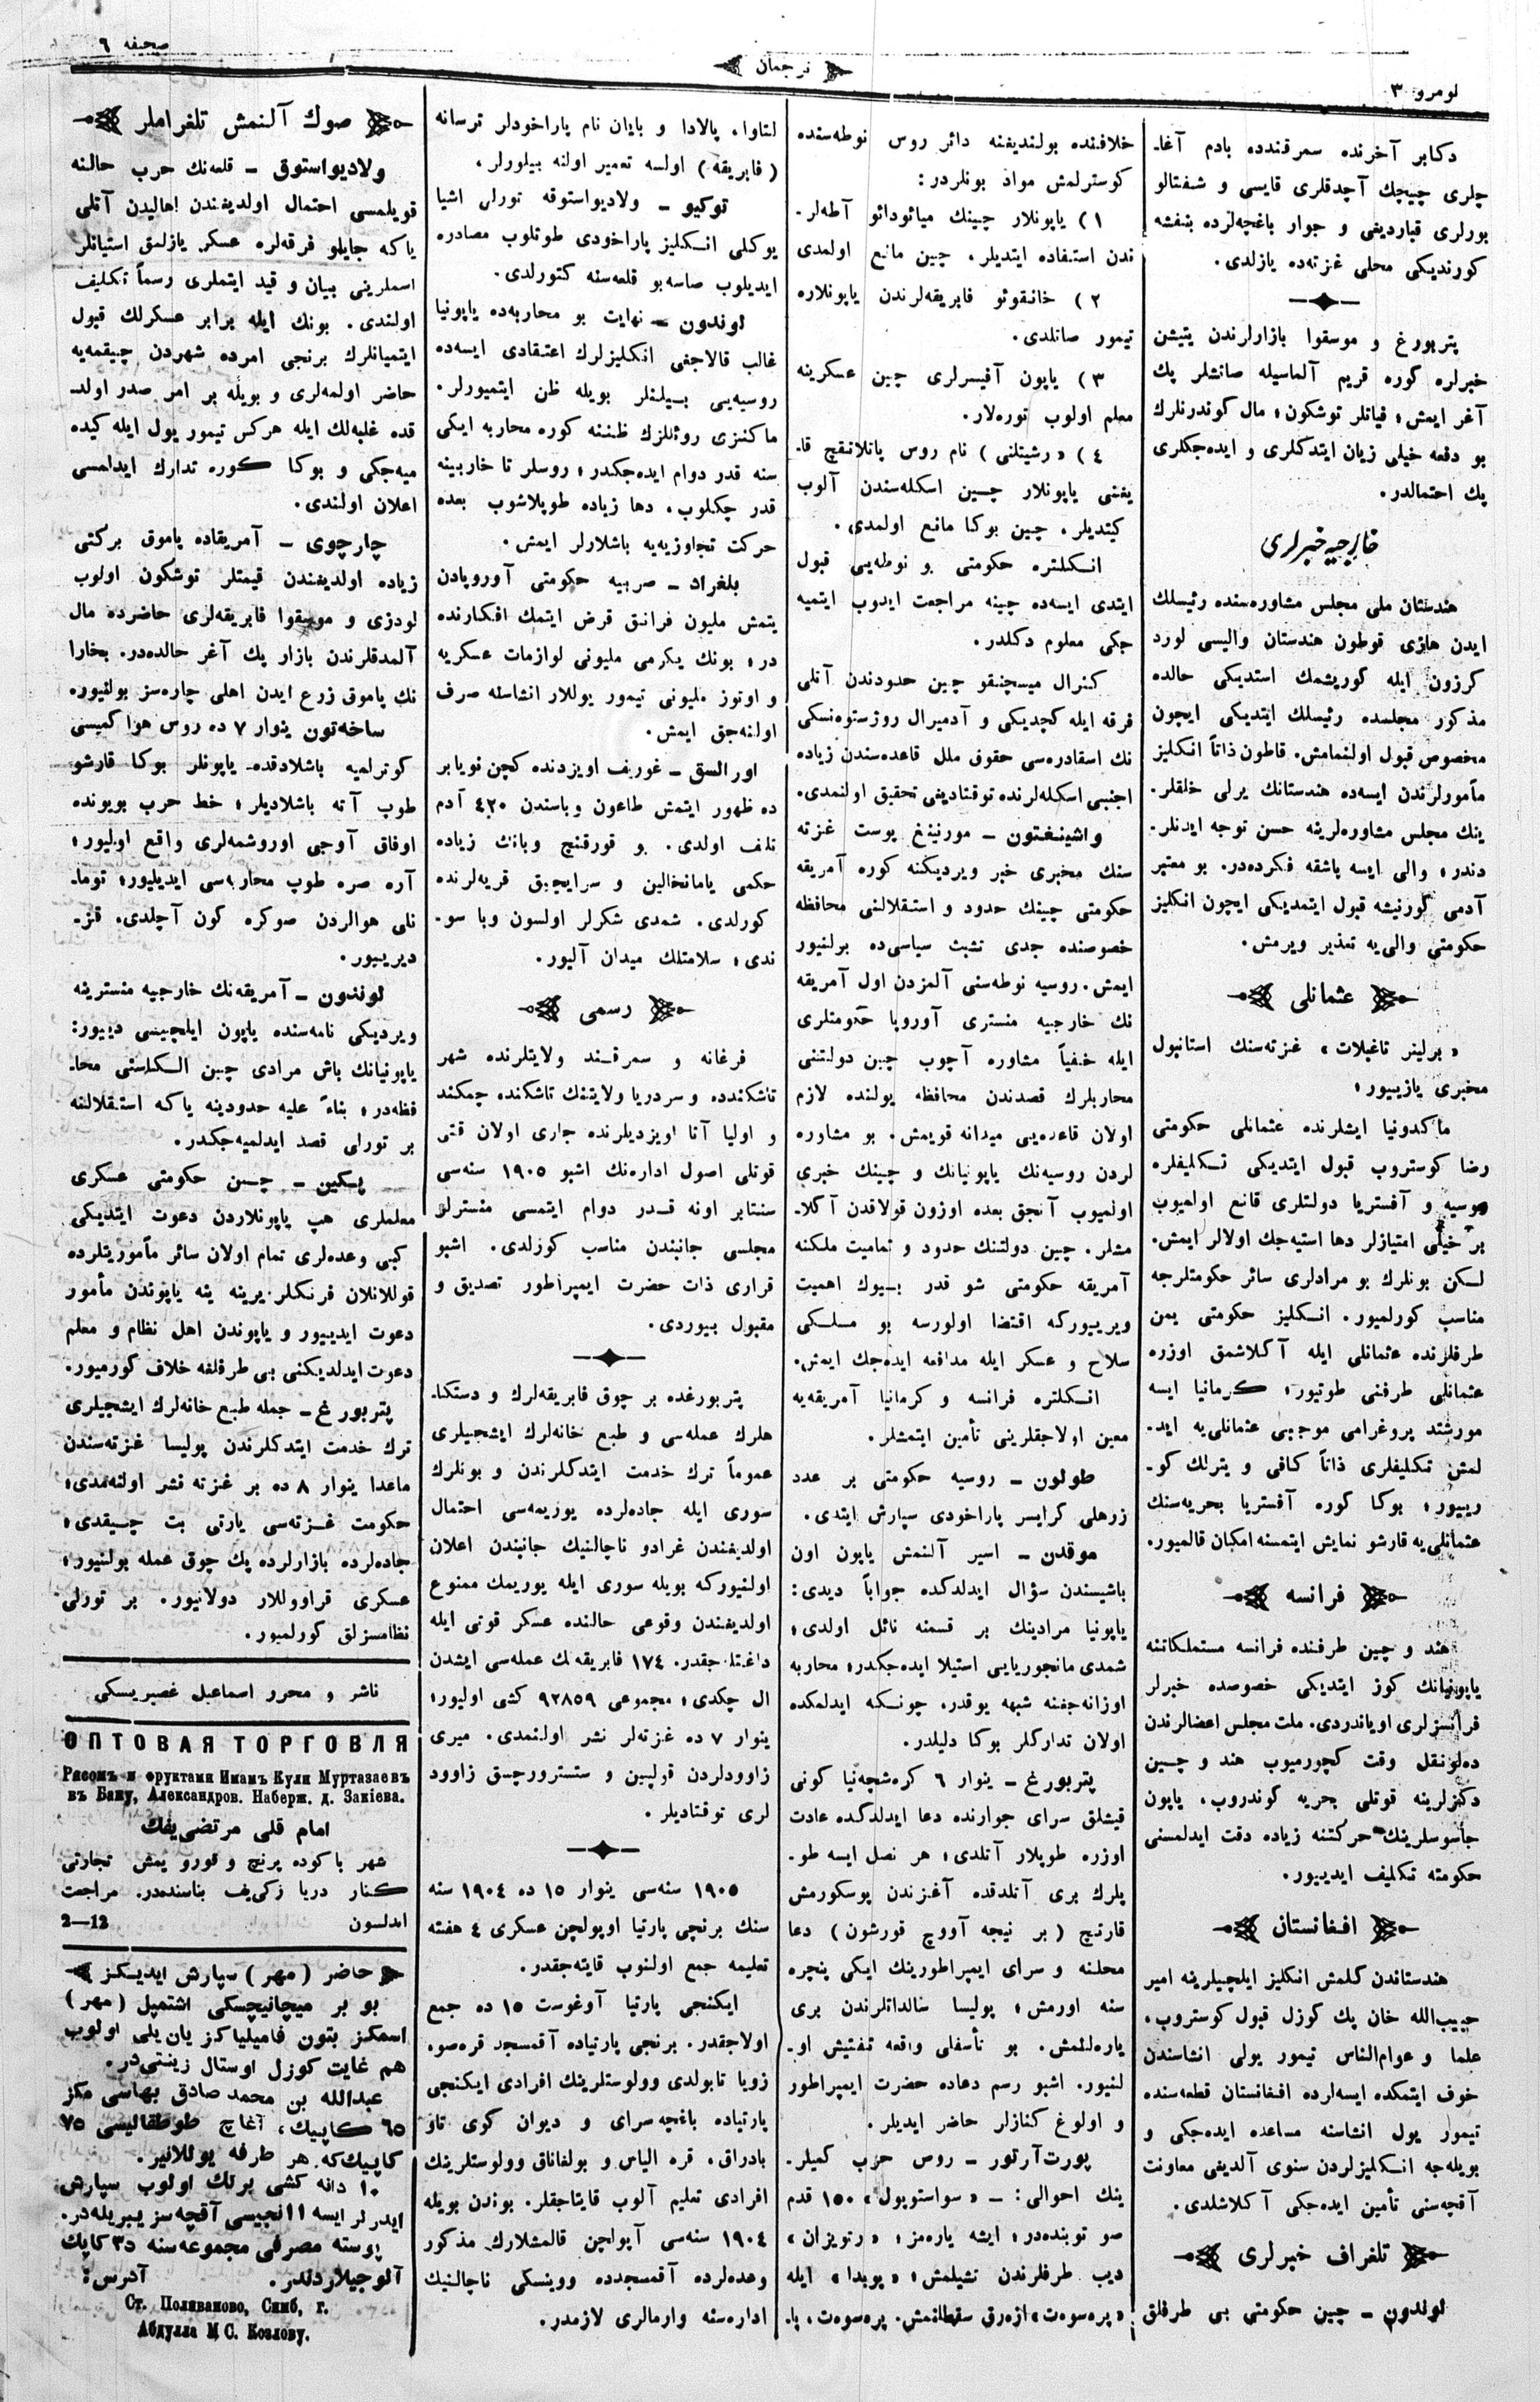 نومرو ٣
ترجمان
صحيفه ٦
دكابر آخرنده سمرقندده بادم آغا-
چلرى چيچك آچدقلرى قايسى و شفتالو
بورلرى قباردیغى و جوار باغچه‌لرده بنفشه
كورنديكى محلى غزته‌ده يازلدى.
پتربورغ و موسقوا بازارلرندن يتيشن
خبرلره كوره قريم آلماسيله صاتشلر پك
آغر ايمش؛ قياتلر توشكون؛ مال كوندرنلرك
بو دفعه خيلى زيان ايتدكلرى و ايده‌جكلرى
پك احتمالدر.
خارجيه خبرلرى
هندستان ملى مجلس مشاوره‌سنده رئيسلك
ايدن هانرى قوطون هندستان واليسى لورد
كرزون ايله كوريشمك استديكى حالده
مذكور مجلسده رئيسلك ايتديكى ايچون
مخصوص قبول اولنمامش. قاطون ذاتاً انكليز
مأمورلرندن ايسه‌ده هندستانك يرلى خلقلر-
ينك مجلس مشاوره‌لرينه حسن توجه ايدنلر-
دندر؛ والى ايسه باشقه فكرده‌در. بو معتبر
آدمى كورنيشه قبول ايتمديكى ايچون انكليز
حكومتى والى‌يه تعذير ويرمش.
عثمانلى
«برلينر تاغبلات» غزته‌سنك استانبول
مخبرى يازييور؛
ماكدونيا ايشلرنده عثمانلى حكومتى
رضا كوستروب قبول ايتديكى تكليفلره
روسيه و آفستريا دولتلرى قانع اولميوب
بر خيلى امتيازلر دها استيه‌جك اولالر ايمش.
لكن بونلرك بو مرادلرى سائر حكومتلرجه
مناسب كورلميور. انكليز حكومتى يمن
طرفلرنده عثمانلى ايله آكلاشمق اوزره
عثمانلى طرفنى طوتيور؛ كرمانيا ايسه
مورشتد پروغرامى موجبى عثمانلى‌يه ايد-
لمش تكليفلرى ذاتاً كافى و يترلك كو-
رييور؛ بوكا كوره آفستريا بحريه‌سنك
عثمانلى‌يه قارشو نمايش ايتمسنه امكان قالميور.
فرانسه
هند و چين طرفنده فرانسه مستملكاتنه
ياپونيانك كوز ايتديكى خصوصده خبرلر
فرانسزلرى اوياندردى. ملت مجلس اعضالرندن
ده‌لونقل وقت كچورميوب هند و چين
دكزلرينه قوتلى بحريه كوندروب، ياپون
جاسوسلرينك حركتنه زياده دقت ايدلمسنى
حكومته تكليف ايدييور.
افغانستان
هندستاندن كلمش انكليز ايلچيلرينه امير
حبيب‌الله خان پك كوزل قبول كوستروب،
علما و عوام‌الناس تيمور يولى انشاسندن
خوف ايتمكده ايسه‌لرده افغانستان قطعه‌سنده
تيمور يول انشاسنه مساعده ايده‌جكى و
بويله‌جه انكليزلردن سنوى آلديغى معاونت
آقچه‌سنى تأمين ايده‌جكى آكلاشلدى.
تلغراف خبرلرى
لوندون – چين حكومتى بى طرفلق
خلافنده بولنديغنه دائر روس نوطه‌سنده
كوسترلمش مواد بونلردر:
١) ياپونلار چينك مياثوداثو آطه‌لر-
ندن استفاده ايتديلر. چين مانع اولمدى
٢) خانقوثو فابريقه‌لرندن ياپونلاره
تيمور صاتلدى.
٣) ياپون آفيسرلرى چين عسكرينه
معلم اولوب توره‌لار.
٤) «رشيتلنى» نام روس پاتلاتقيچ قا-
يغنى ياپونلار چين اسكله‌سندن آلوب
كيتديلر. چين بوكا مانع اولمدى.
انكلتره حكومتى بو نوطه‌يى قبول
ايتدى ايسه‌ده چينه مراجعت ايدوب ايتميه
جكى معلوم دكلدر.
كنرال ميسچنقو چين حدودندن آتلى
فرقه ايله كچديكى و آدميرال روژستوه‌نسكى
نك اسقادره‌سى حقوق ملل قاعده‌سندن زياده
اجنبى اسكله‌لرنده توقتاديغى تحقيق اولنمدى.
واشينغتون – مورنينغ پوست غزته
سنك مخبرى خبر ويرديكنه كوره آمريقه
حكومتى چينك حدود و استقلالنى محافظه
خصوصنده جدى تشبث سياسى‌ده برلنيور
ايمش. روسيه نوطه‌سنى آلمزدن اول آمريقه
نك خارجيه منسترى آوروپا حكومتلرى
ايله خفياً مشاوره آچوب چين دولتنى
محاربلرك قصدندن محافظه يولنده لازم
اولان قاعده‌يى ميدانه قويمش. بو مشاوره
لردن روسيه‌نك ياپونيانك و چينك خبرى
اولميوب آنجق بعده اوزون قولاقدن آكلا-
مشلر. چين دولتنك حدود و تماميت ملكنه
آمريقه حكومتى شو قدر بيوك اهميت
ويرييوركه اقتضا اولورسه بو مسلكى
سلاح و عسكر ايله مدافعه ايده‌جك ايمش.
انكلتره فرانسه و كرمانيا آمريقه‌يه
معين اولاجقلرينى تأمين ايتمشلر.
طولون – روسيه حكومتى بر عدد
زرهلى كرايسر پاراخودى سپارش ايتدى.
موقدن – اسير آلنمش ياپون اون
باشيسندن سؤال ايدلدكده جواباً ديدى:
ياپونيا مرادينك بر قسمنه نائل اولدى؛
شمدى مانجوريايى استيلا ايده‌جكدر؛ محاربه
اوزانه‌جغنه شبهه يوقدر. چونكه ايدلمكده
اولان تداركلر بوكا دليلدر.
پتربورغ – ينوار ٦ كره‌شچه‌نيا كونى
قيشلق سراى جوارنده دعا ايدلدكده عادت
اوزره طوپلار آتلدى؛ هر نصل ايسه طو-
پلرك برى آتلدقده آغزندن پوسكورمش
قارتچ (بر نيجه آووچ قورشون) دعا
محلنه و سراى ايمپراطورينك ايكى پنجره
سنه اورمش؛ پوليسا سالداتلرندن برى
ياره‌لنمش. بو تأسفلى واقعه تفتيش او-
لنيور. اشبو رسم دعاده حضرت ايمپراطور
و اولوغ كنازلر حاضر ايديلر.
پورت‌آرتور – روس حرب كميلر-
ينك احوالى: – «سواستوپول» ١٥٠ قدم
صو توبنده‌در؛ ايشه ياره‌مز؛ «رتويزان»
ديب طرفلرندن تشيلمش؛ «پوبدا» ايله
«پره‌سوه‌ت» ازه‌رق سقطلنمش. پره‌سوه‌ت، پا-
لتاوا، پالادا و بايان نام پاراخودلر ترسانه
(فابريقه) اولسه تعمير اولنه بيلورلر.
توكيو – ولاديواستوقه تورلى اشيا
يوكلى انكليز پاراخودى طوتلوب مصادره
ايديلوب صاسه‌بو قلعه‌سنه كتورلدى.
لوندون – نهايت بو محاربه‌ده ياپونيا
غالب قالاجغى انكليزلرك اعتقادى ايسه‌ده
روسيه‌يى بيلنلر بويله ظن ايتميورلر.
ماكنزى روثللزك ظننه كوره محاربه ايكى
سنه قدر دوام ايده‌جكدر؛ روسلر تا خاربينه
قدر چكلوب، دها زياده طوپلاشوب بعده
حركت تجاوزيه‌يه باشلارلر ايمش.
بلغراد – صربيه حكومتى آوروپادن
يتمش مليون فرانق قرض ايتمك افكارنده
در؛ بونك يكرمى مليونى لوازمات عسكريه
و اوتوز مليونى تيمور يوللار انشاسنه صرف
اولنه‌جق ايمش.
اورالسق – غوريف اويزدنده كچن نويابر
ده ظهور ايتمش طاعون وباسندن ٤٢٠ آدم
تلف اولدى. بو قورقنچ وبانك زياده
حكمى يامانخالين و سرايچيق قريه‌لرنده
كورلدى. شمدى شكرلر اولسون وبا سو-
ندى؛ سلامتلك ميدان آليور.
رسمى
فرغانه و سمرقند ولايتلرنده شهر
تاشكندده و سردريا ولايتنك تاشكنده چمكند
و اوليا آتا اويزديلرنده جارى اولان قتى
قوتلى اصول اداره‌نك اشبو ١٩٠٥ سنه‌سى
سنتابر اونه قدر دوام ايتمسى منسترلر
مجلسى جانبندن مناسب كوزلدى. اشبو
قرارى ذات حضرت ايمپراطور تصديق و
مقبول بيوردى.
پتربورغده بر چوق فابريقه‌لرك و دستكا-
هلرك عمله‌سى و طبع خانه‌لرك ايشجيلرى
عموماً ترك خدمت ايتدكلرندن و بونلرك
سورى ايله جاده‌لرده يوريمه‌سى احتمال
اولديغندن غرادو ناچالنيك جانبندن اعلان
اولنيوركه بويله سورى ايله يوريمك ممنوع
اولديغندن وقوعى حالنده عسكر قوتى ايله
داغتلاجقدر. ١٧٤ فابريقه‌نك عمله‌سى ايشدن
ال چكدى؛ مجموعى ٩٢٨٥٩ كشى اوليور؛
ينوار ٧ ده غزته‌لر نشر اولنمدى. ميرى
زاوودلردن قولپين و سسترورچسق زاوود
لرى توقتاديلر.
١٩٠٥ سنه‌سى ينوار ١٥ ده ١٩٠٤ سنه
سنك برنچى پارتيا اوپولچن عسكرى ٤ هفته
تعليمه جمع اولنوب قايته‌جقدر.
ايكنجى پارتيا آوغوست ١٥ ده جمع
اولاجقدر. برنجى پارتياده آقمسجد قره‌صو،
زويا تابولدى وولوستلرينك افرادى ايكنجى
پارتياده باغچه سراى و ديوان كوى تاو
بادراق، قره الياس و بولغاناق وولوستلرينك
افرادى تعليم آلوب قايتاجقلر. بوندن بويله
١٩٠٤ سنه‌سى آپولچن قالمشلارك مذكور
وعده‌لرده آقمسجدده ووينسكى ناچالنيك
اداره‌سنه وارمالرى لازمدر.
صوك آلنمش تلغراملر
ولاديواستوق – قلعه‌نك حرب حالنه
قويلمسى احتمال اولديغندن اهاليدن آتلى
ياكه جاياو فرقه‌لره عسكر يازلمق استيانلر
اسملرينى بيان و قيد ايتملرى رسماً تكليف
اولندى. بونك ايله برابر عسكرلك قبول
ايتميانلرك برنجى امرده شهردن چيقمه‌يه
حاضر اولمه‌لرى و بويله بر امر صدر اولد-
قده غلبه‌لك ايله هركس تيمور يول ايله كيده
ميه‌جكى و بوكا كوره تدارك ايدلمسى
اعلان اولندى.
چارچوى – آمريقاده پاموق بركتى
زياده اولديغندن قيمتلر توشكون اولوب
لودزى و موسقوا فابريقه‌لرى حاضرده مال
آلمدقلرندن بازار پك آغر حالده‌در. بخارا
نك پاموق زرع ايدن اهلى چاره‌سز بولنيور.
ساخه‌تون ينوار ٧ ده روس هوا كميسى
كوترلميه باشلادقده ياپونلر بوكا قارشو
طوپ آته باشلاديلر؛ خط حرب بوينده
اوفاق آوجى اوروشمه‌لرى واقع اوليور؛
آره صره طوپ محاربه‌سى ايديليور؛ توما-
نلى هوالردن صوكره كون آچلدى. قز-
ديرييور.
لوندون – آمريقه‌نك خارجيه منسترينه
ويرديكى نامه‌سنده ياپون ايلچيسى دييور:
ياپونيانك باش مرادى چين الكاسنى محا-
فظه‌در؛ بناءً عليه حدودينه ياكه استقلالنه
بر تورلى قصد ايدلميه‌جكدر.
پكين – چين حكومتى عسكرى
معلملرى هپ ياپونلاردن دعوت ايتديكى
كبى وعده‌لرى تمام اولان سائر مأموريتلرده
قوللانلان فرنكلر يرينه ينه ياپوندن مأمور
دعوت ايدييور و ياپوندن اهل نظام و معلم
دعوت ايدلديكنى بى طرفلغه خلاف كورميور.
پتربورغ – جمله طبع خانه‌لرك ايشجيلرى
ترك خدمت ايتدكلرندن پوليسا غزته‌سندن
ماعدا ينوار ٨ ده بر غزته نشر اولنمدى؛
حكومت غزته‌سى يارتى بت چيقدى؛
جاده‌لرده بازارلرده پك چوق عمله بولنيور؛
عسكرى قراووللار دولانيور. بر تورلى
نظامسزلق كورلميور.
ناشر و محرر اسماعيل غصپرينسكى
ОПТОВАЯ ТОРГОВЛЯ
Рисомъ и фруктами Имамъ Кули Муртазаевъ
въ Баку, Александров. Набереж. д. Закіева.
امام قلى مرتضى‌يفك
شهر باكوده پرنج و قورو يمش تجارتى
كنار دريا زكى‌يف بناسنده‌در. مراجعت
ايدلسون 2—12
حاضر (مهر) سپارش ايديكز
بو بر ميچانيچسكى اشتمپل (مهر)
اسمكز بتون فاميلياكز يان يلى اولوب
هم غايت كوزل اوستال زينتى‌در.
عبدالله بن محمد صادق بهاسى مكز
٦٥ كاپيك، آغاچ طوطقاليسى ٧٥
كاپيك‌كه هر طرفه يوللانير.
١٠ دانه كشى برلك اولوب سپارش
ايدرلر ايسه ١١نجيسى آقچه‌سز بيريله‌در.
پوسته مصرفى مجموعه‌سنه ٣٥ كاپك
آلوجيلاردندر. آدرس:
Ст. Поливаново, Симб. г.
Абдулла М С. Козлову.